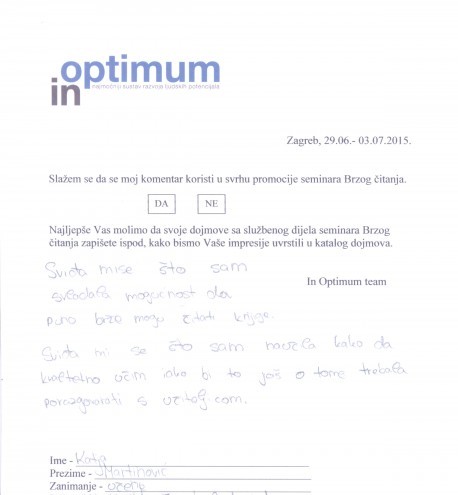 in optimum
najmoćniji sustav razvoja ljudskih potencijala
Zagreb, 29.06.- 03.07.2015.
Slažem se da se moj komentar koristi u svrhu promocije seminara Brzog čitanja.
DA NE
Najljepše Vas molimo da svoje dojmove sa službenog dijela seminara Brzog
čitanja zapišete ispod, kako bismo Vaše impresije uvrstili u katalog dojmova.
Sviđa mi se što sam
In Optimum team
mogućnost da
puno brzo mogu čitati knjige.
Sviđa mi se što sam naučila kako da
kvalitetno učim iako bi to još o tome trebala
porazgovarati s učiteljicom.
Ime - Katja
Prezime - Martinović
Zanimanje - učenik